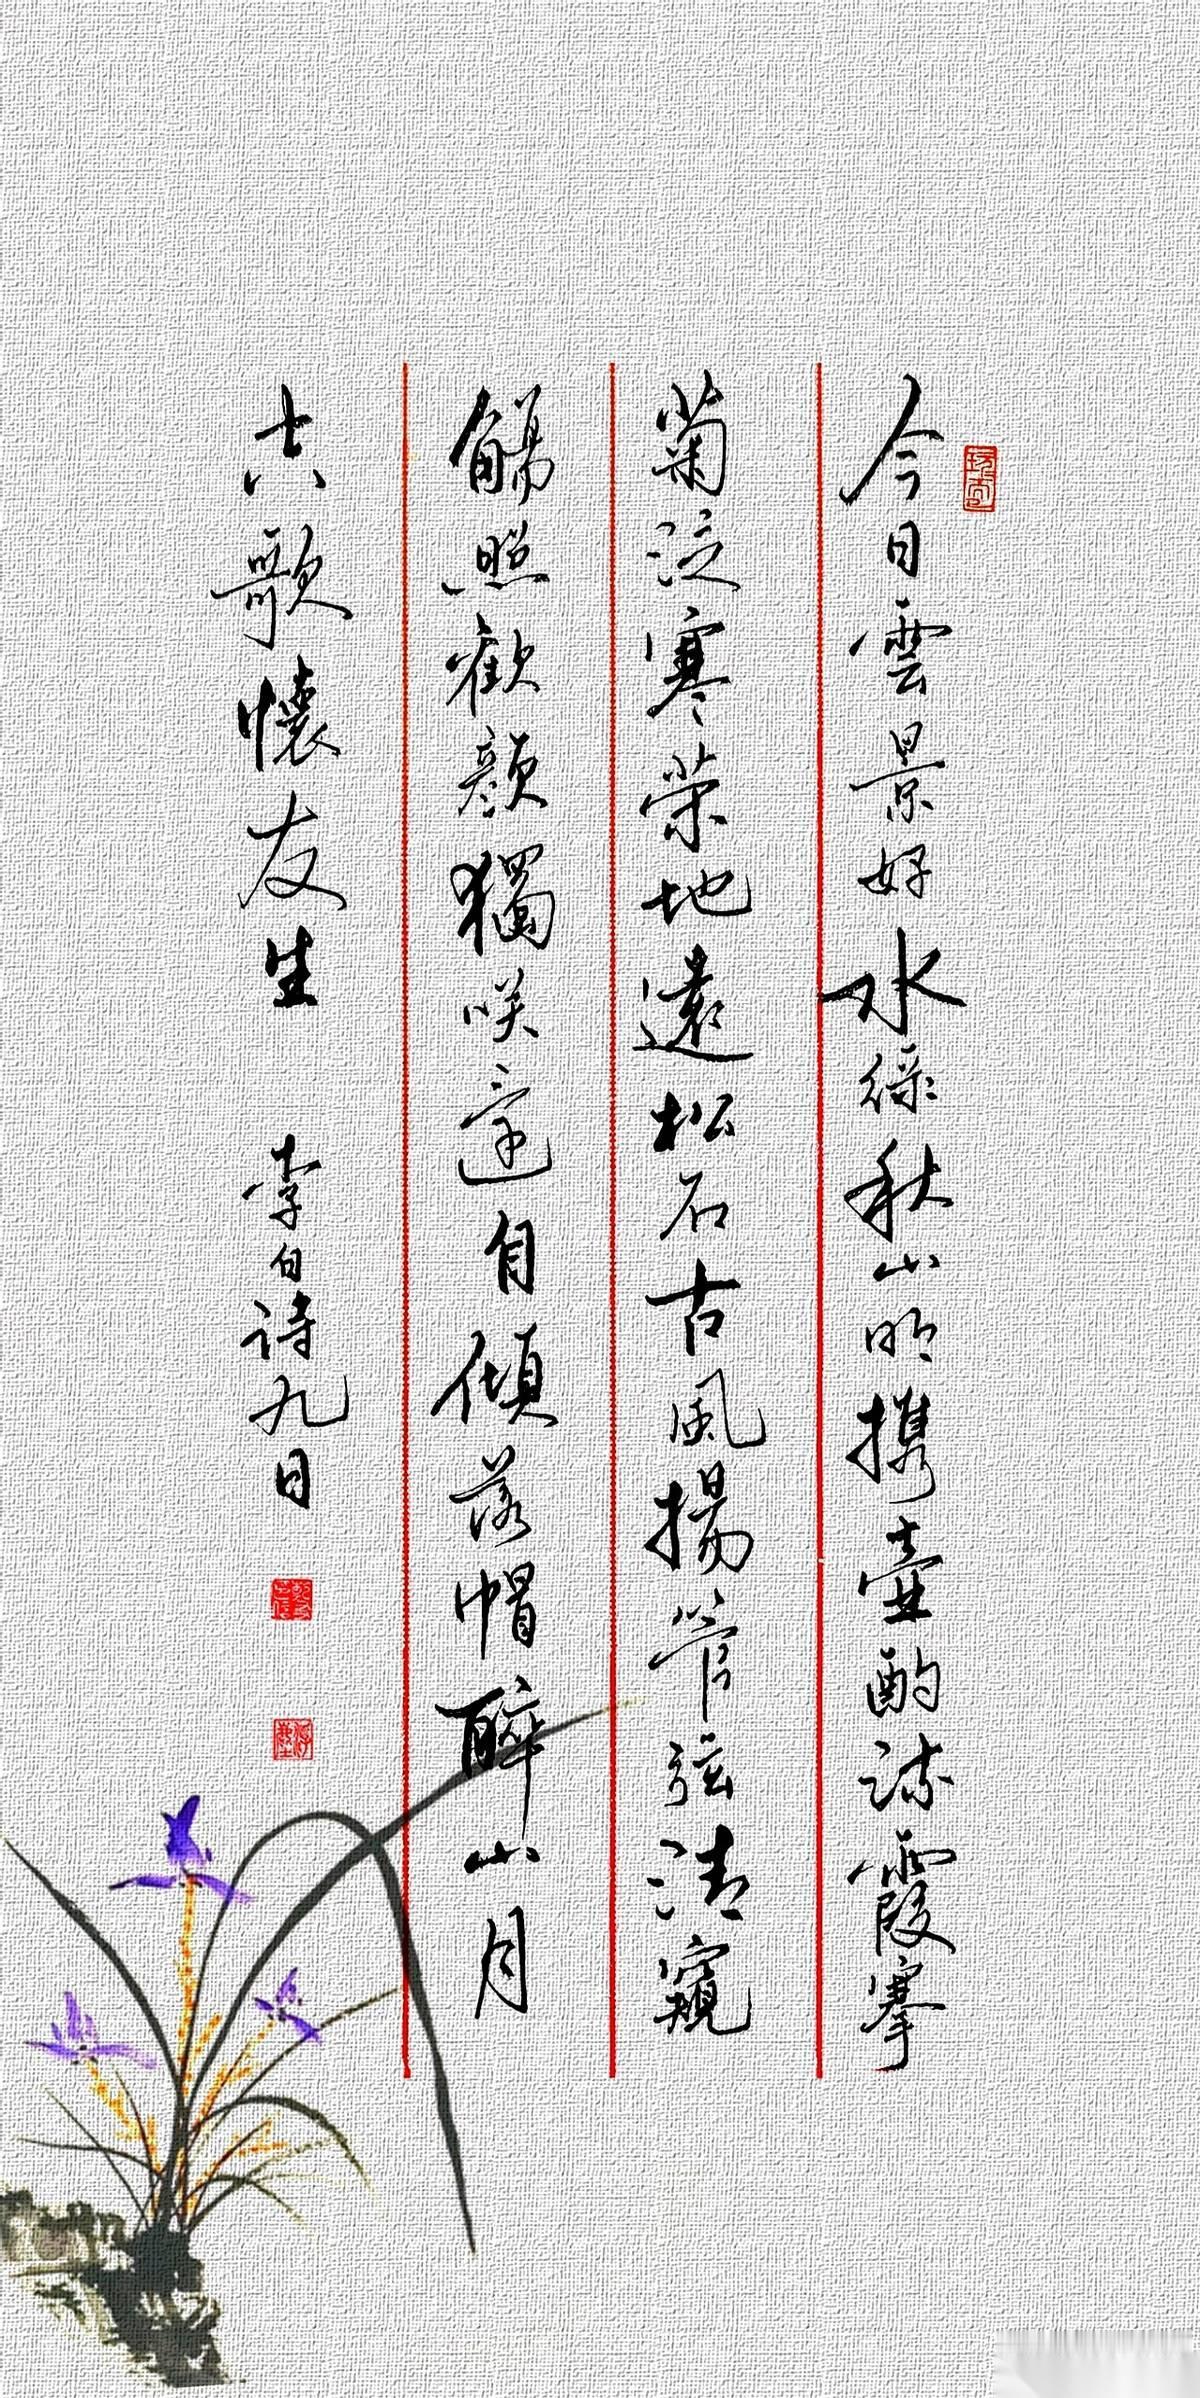 今日雲景好水綠秋山明携壺酌流霞搴
菊泛寒荣地遠松石古風揚管弦清窺
觴照歡顔獨咲還自傾落帽醉山月
空歌懷友生 李白诗九日